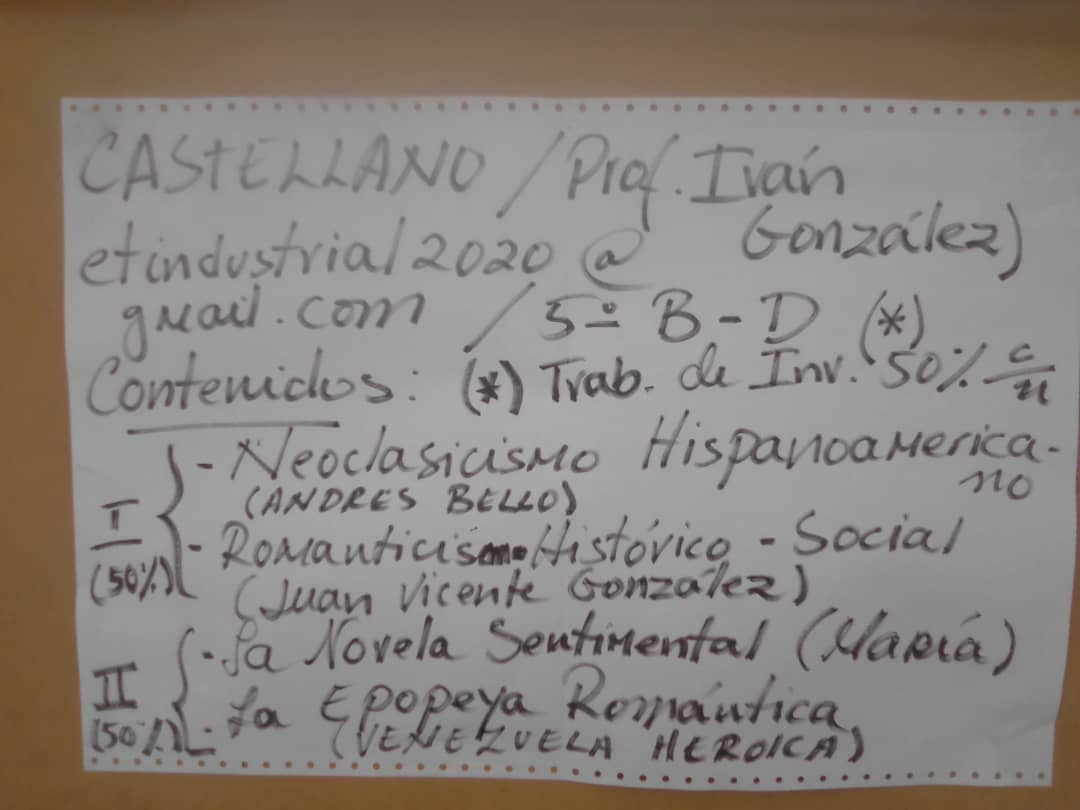 CASTELLANO / Prof. Iván
González)
etindustrial2020@
gmail.com / 5º B - D (*)
Contenidos: (*) Trab. de Inv. 50% c/u
I (50%)
- Neoclasicismo Hispanoamerica-
no
(ANDRES BELLO)
- Romanticismo Histórico - Social
(Juan Vicente González)
II (50%)
- La Novela Sentimental (María)
- La Epopeya Romántica
(VENEZUELA HEROICA)